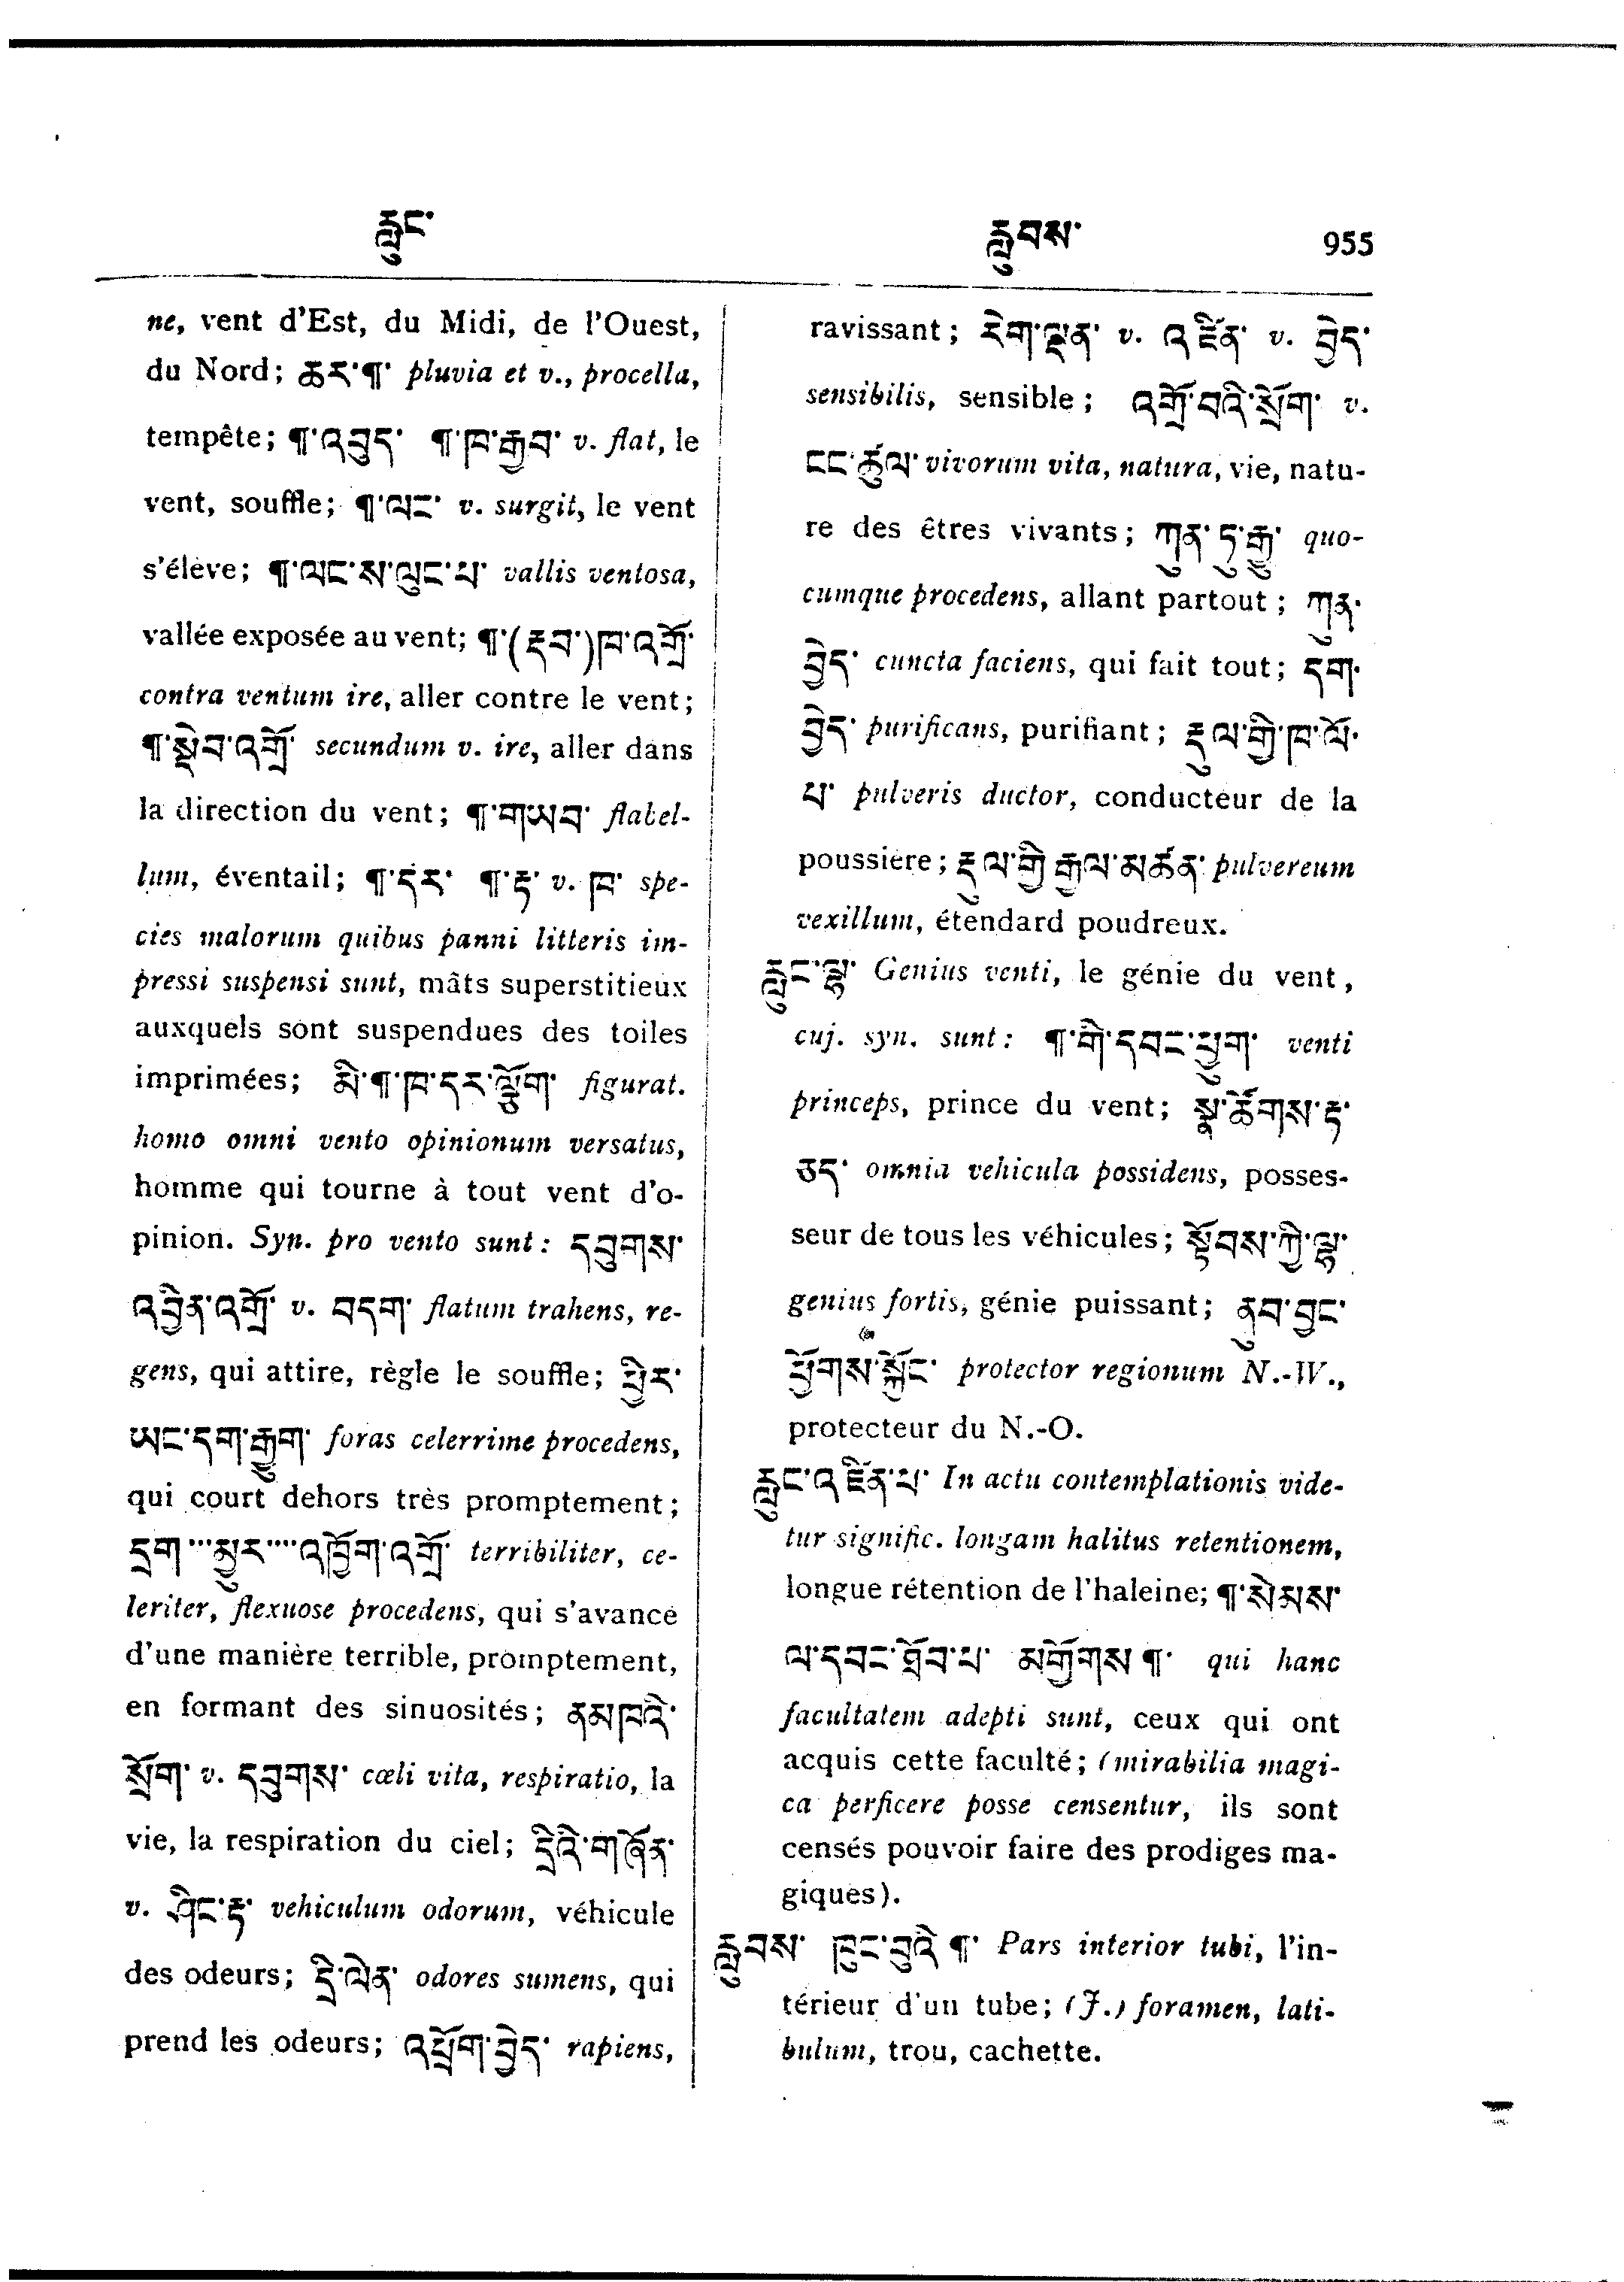 རླུང་
རླུབས་ 955
ne, vent d'Est, du Midi, de l'Ouest,
du Nord; ཆར་¶་ pluvia et v., procella,
tempête; ¶་འབུད་ ¶་ཁ་རྒྱབ་ v. flat, le
vent, souffle; ¶་ལང་ v. surgit, le vent
s'élève; ¶་ལང་ས་ལུང་པ་ vallis ventosa,
vallée exposée au vent; ¶་(རྡབ་)ཁ་འགྲོ་
contra ventum ire, aller contre le vent;
¶་སྡེབ་འགྲོ་ secundum v. ire, aller dans
la direction du vent; ¶་གཡབ་ flabel-
lum, éventail; ¶་དར་ ¶་རྟ་ v. ཁ་ spe-
cies malorum quibus panni litteris im-
pressi suspensi sunt, mâts superstitieux
auxquels sont suspendues des toiles
imprimées; མི་¶་ཁ་དར་ལྕོག་ figurat.
homo omni vento opinionum versatus,
homme qui tourne à tout vent d'o-
pinion. Syn. pro vento sunt: དབུགས་
འབྱིན་འགྲོ་ v. བདག་ flatum trahens, re-
gens, qui attire, règle le souffle; ཕྱིར་
ཡང་དག་རྒྱུག་ foras celerrime procedens,
qui court dehors très promptement;
དྲག་···མྱུར་····འཁྱོག་འགྲོ་ terribiliter, ce-
leriter, flexuose procedens, qui s'avance
d'une manière terrible, promptement,
en formant des sinuosités; ནམཁའི་
སྲོག་ v. དབུགས་ cœli vita, respiratio, la
vie, la respiration du ciel; དྲིའི་གཞོན་
v. ཤིང་རྟ་ vehiculum odorum, véhicule
des odeurs; དྲི་ལེན་ odores sumens, qui
prend les odeurs; འཕྲོག་བྱེད་ rapiens,
ravissant; རེག་ལྡན་ v. འཛིན་ v. བྱེད་
sensibilis, sensible; འགྲོ་བའི་སྲོག་ v.
ངང་ཚུལ་ vivorum vita, natura, vie, natu-
re des êtres vivants; ཀུན་ཏུ་རྒྱུ་ quo-
cumque procedens, allant partout; ཀུན་
བྱེད་ cuncta faciens, qui fait tout; དག་
བྱེད་ purificans, purifiant; རྡུལ་གྱི་ཁ་ལོ་
པ་ pulveris ductor, conducteur de la
poussière; རྡུལ་གྱི་རྒྱལ་མཚན་ pulvereum
vexillum, étendard poudreux.
རླུང་ལྷ་ Genius venti, le génie du vent,
cuj. syn. sunt: ¶་གི་དབང་ཕྱུག་ venti
princeps, prince du vent; སྣ་ཚོགས་རྟ་
ཅད་ omnia vehicula possidens, posses-
seur de tous les véhicules; སྟོབས་ཀྱི་ལྷ་
genius fortis, génie puissant; ནུབ་བྱང་
ཕྱོགས་སྐྱོང་ protector regionum N.-W.,
protecteur du N.-O.
རླུང་འཛིན་པ་ In actu contemplationis vide-
tur signific. longam halitus retentionem,
longue rétention de l'haleine; ¶་སེམས་
ལ་དབང་ཐོབ་པ་ མགྱོགས་¶་ qui hanc
facultatem adepti sunt, ceux qui ont
acquis cette faculté; (mirabilia magi-
ca perficere posse censentur, ils sont
censés pouvoir faire des prodiges ma-
giques).
རླུབས་ ཁུང་བུའི་¶་ Pars interior tubi, l'in-
térieur d'un tube; (J.) foramen, lati-
bulum, trou, cachette.